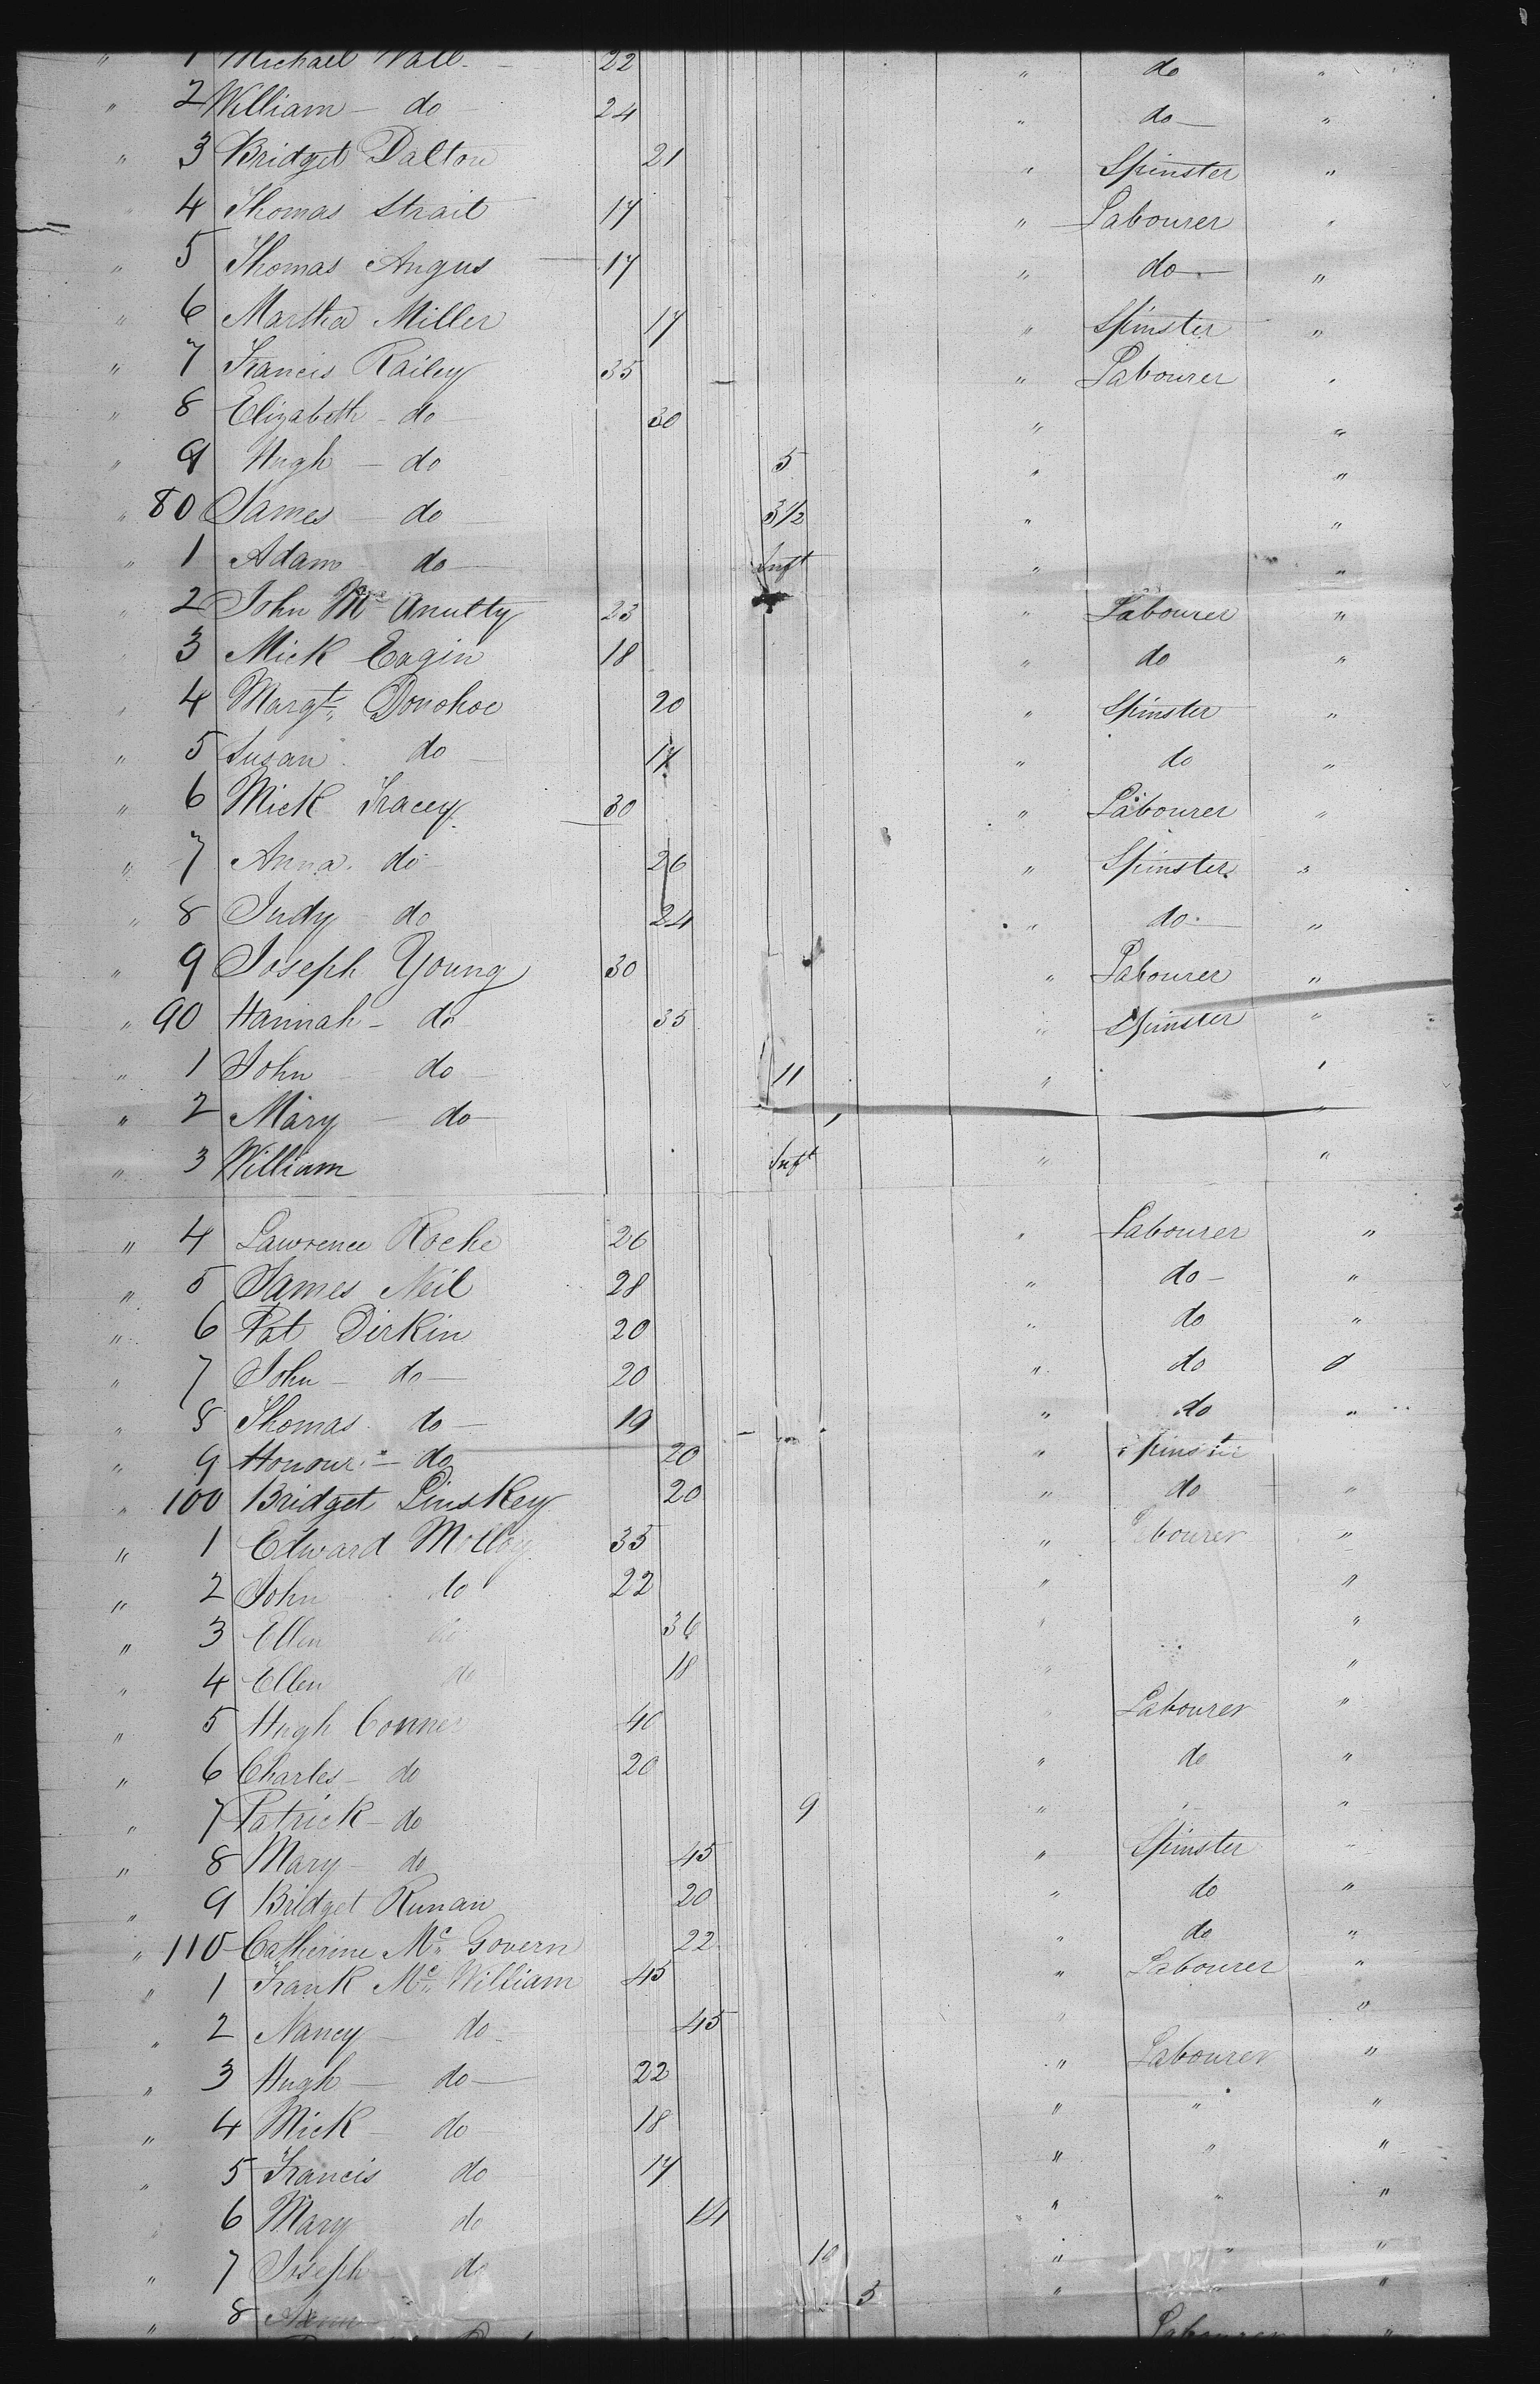 " 1 Michael Wall - 22 " do "
" 2 William - do 24 " do - "
" 3 Bridget Dalton 21 " Spinster "
4 Thomas Strait 17 " Labourer "
" 5 Thomas Angus 17 " do - "
" 6 Martha Miller 17 " Spinster "
" 7 Francis Railey 35 " Labourer "
" 8 Elizabeth - do - 30 " "
" 9 Hugh - do 5 " "
" 80 James - do - 3 1/2 " "
" 1 Adam do - Inft " "
" 2 John Mc Anutty 23 " Labourer "
" 3 Mick Eagin 18 " do "
" 4 Margt. Donohoe 20 " Spinster "
" 5 Susan do - 17 " do "
" 6 Mick Tracey 30 " Labourer "
" 7 Anna do - 26 " Spinster "
" 8 Judy - do 24 " do - "
" 9 Joseph Young 30 " Labourer "
" 90 Hannah - do 35 " Spinster "
" 1 John - do - 11 " "
" 2 Mary - do - "
" 3 William Inft " "
" 4 Lawrence Roche 26 " Labourer "
" 5 James Neil 28 " do - "
" 6 Pat Dirkin 20 " do "
" 7 John - do - 20 " do "
" 8 Thomas do - 19 " do "
" 9 Honour - do 20 " Spinster
" 100 Bridget Linskey 20 " do "
" 1 Edward Molloy 35 " Labourer "
" 2 John do 22 " "
" 3 Ellen do 36 " "
" 4 Ellen do 18 " "
" 5 Hugh Conner 40 " Labourer "
" 6 Charles - do 20 " do "
" 7 Patrick - do 9 " "
" 8 Mary - do 45 " Spinster "
" 9 Bridget Runan 20 " do "
" 110 Catherine Mc Govern 22 " do "
" 1 Frank Mc William 45 " Labourer "
" 2 Nancy - do - 45 " "
" 3 Hugh - do - 22 " Labourer "
" 4 Mick - do - 18 " " "
" 5 Francis do 17 " " "
" 6 Mary do 14 " " "
" 7 Joseph do 10 " " "
" 8 3 " "
Labourer "